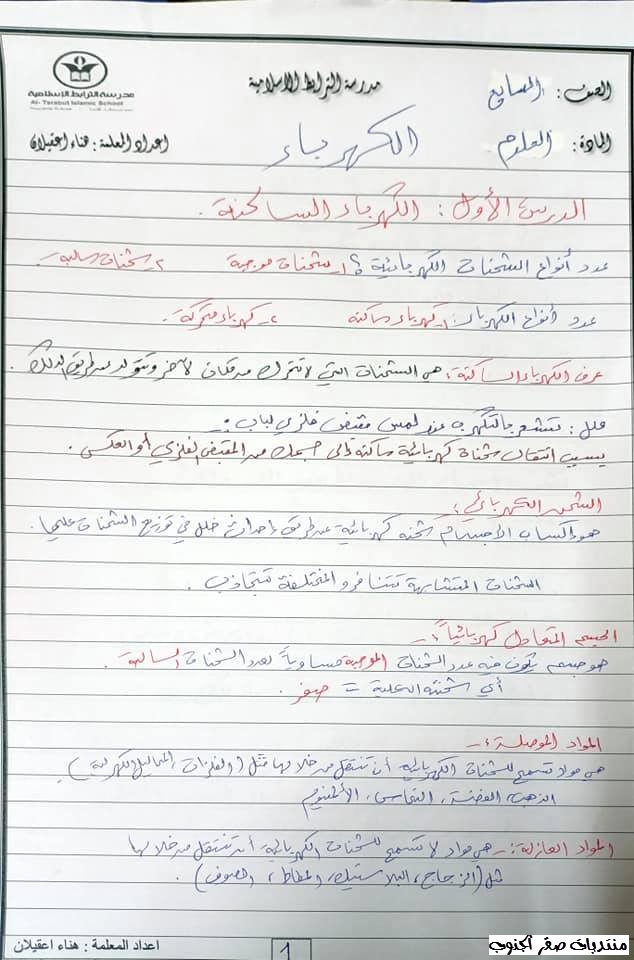 الصف: السابع
مدرسة الترابط الاسلامية
مدرسة الترابط الإسلامية
Al- Tarabut Islamic School
المادة: العلوم
الكهرباء
اعداد المعلمة : هناء اعقيلان
الدرس الأول : الكهرباء الساكنة .
عدد أنواع الشحنات الكهربائية ؟ 1- شحنات موجبة 2- شحنات سالبة
عدد أنواع الكهرباء : 1- كهرباء ساكنة 2- كهرباء متحركة .
عرف الكهرباء الساكنة : هي الشحنات التي لا تتحرك من مكان لآخر وتتولد عن طريق الدلك .
علل : تشعر بالتكهرب عند لمس مقبض فلزي لباب :-
بسبب انتقال شحنات كهربائية ساكنة إلى جسمك من المقبض الفلزي أو العكس .
الشحن الكهربائي :
هو اكساب الأجسام شحنه كهربائية عن طريق إحداث خلل في توزيع الشحنات عليها .
الشحنات المتشابهة تتنافر و المختلفة تتجاذب .
الجسم المتعادل كهربائياً :-
هو جسم يكون فيه عدد الشحنات الموجبة مساوياً لعدد الشحنات السالبة .
أي شحنته الكلية = صفر .
المواد الموصلة :-
هي مواد تسمح للشحنات الكهربائية أن تنتقل من خلالها مثل ( الفلزات ، المحاليل الكهرلية )
الذهب ، الفضة ، النحاس ، الألمنيوم
المواد العازلة :- هي مواد لا تسمح للشحنات الكهربائية أن تنتقل من خلالها
مثل ( الزجاج ، البلاستيك ، المطاط ، الصوف ) .
اعداد المعلمة : هناء اعقيلان
1
منتديات صقر الجنوب